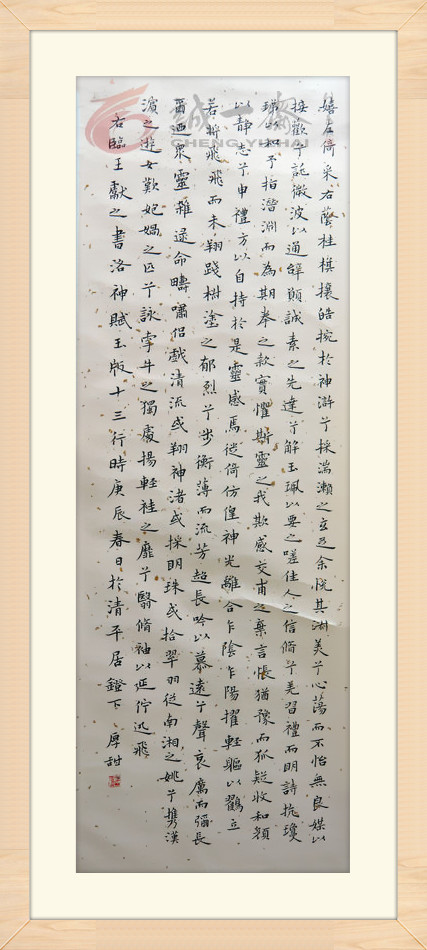 誠一齋
CHENG YI ZHAI
嬉左倚采右蔭桂棋攘皓捥於神滸兮採湍瀨之玄芝余悅其淑美兮心蕩而不怡無良媒以
接歡兮託微波以通辭願誠素之先達兮解玉珮以要之嗟佳人之信脩兮羌習禮而明詩抗瓊
珶以和予指潛淵而為期奉之款實懼斯靈之我欺感交甫之棄言悵猶豫而狐疑收和顏
以靜志兮申禮方以自持於是靈感焉徙倚仿偟神光離合乍陰乍陽擢輕軀以鶴立
若將飛飛而未翔踐樹塗之郁烈兮步衡薄而流芳超長吟以慕遠兮聲哀厲而彌長
爾迺眾靈雜遝命疇嘯侶戲清流或翔神渚或採明珠或拾翠羽從南湘之姚兮攜漢
濱之遊女歎妃媧之匹兮詠牽牛之獨處揚輕袿之靡兮翳脩袖以延佇迅飛
右臨王獻之書洛神賦玉版十三行時庚辰春日於清平居鐙下 厚甜